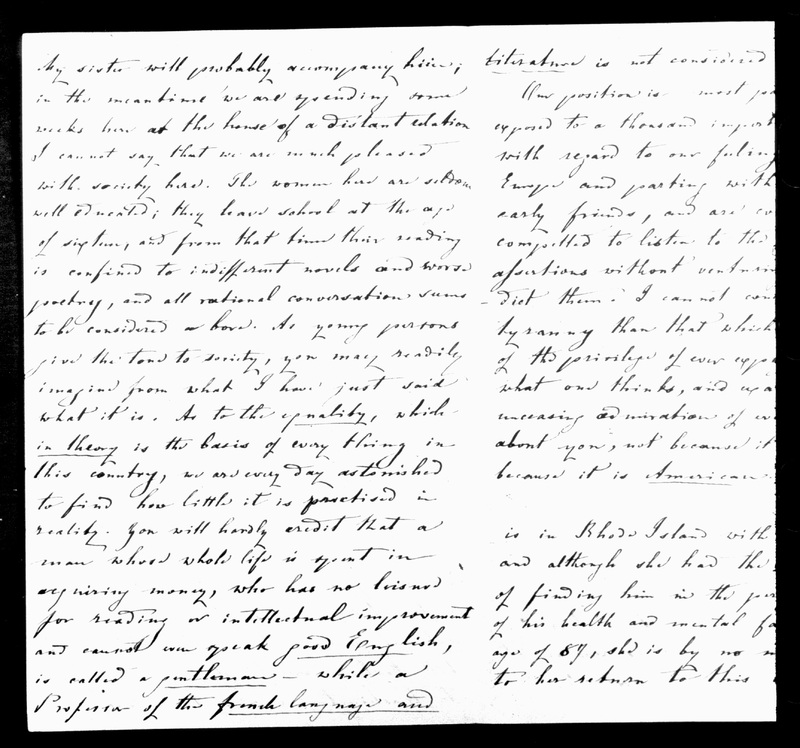 My sister will probably accompany him;
in the meantime we are spending some
weeks here at the house of a distant relation
I cannot say that we are much pleased
with society here. The women here are seldom
well educated; they leave school at the age
of sixteen, and from that time their reading
is confined to indifferent novels and worse
poetry, and all rational conversation seems
to be considered a bore. As young persons
give the tone to society, you may readily
imagine from what I have just said
what it is. As to the equality, which
in theory is the basis of every thing in
this country, we are every day astonished
to find how little it is practised in
reality. You will hardly credit that a
man whose whole life is spent in
acquiring money, who has no leisure
for reading or intellectual improvement
and cannot even speak good English,
is called a gentleman – while a
Professor of the french language and
Literature is not considered
Our position is most
exposed to a thousand
with regard to our feelings
Europe and parting with
early friends, and are
compelled to listen to the
assertions without
dict them. I cannot
tyranny than that which
of the privilege of ever
what one thinks, and
unceasing admiration of
about you, not because it
because it is American.
is in Rhode Island with
and although she had the
of finding him in the
of his health and mental
age of 87, she is by no
to her return to this